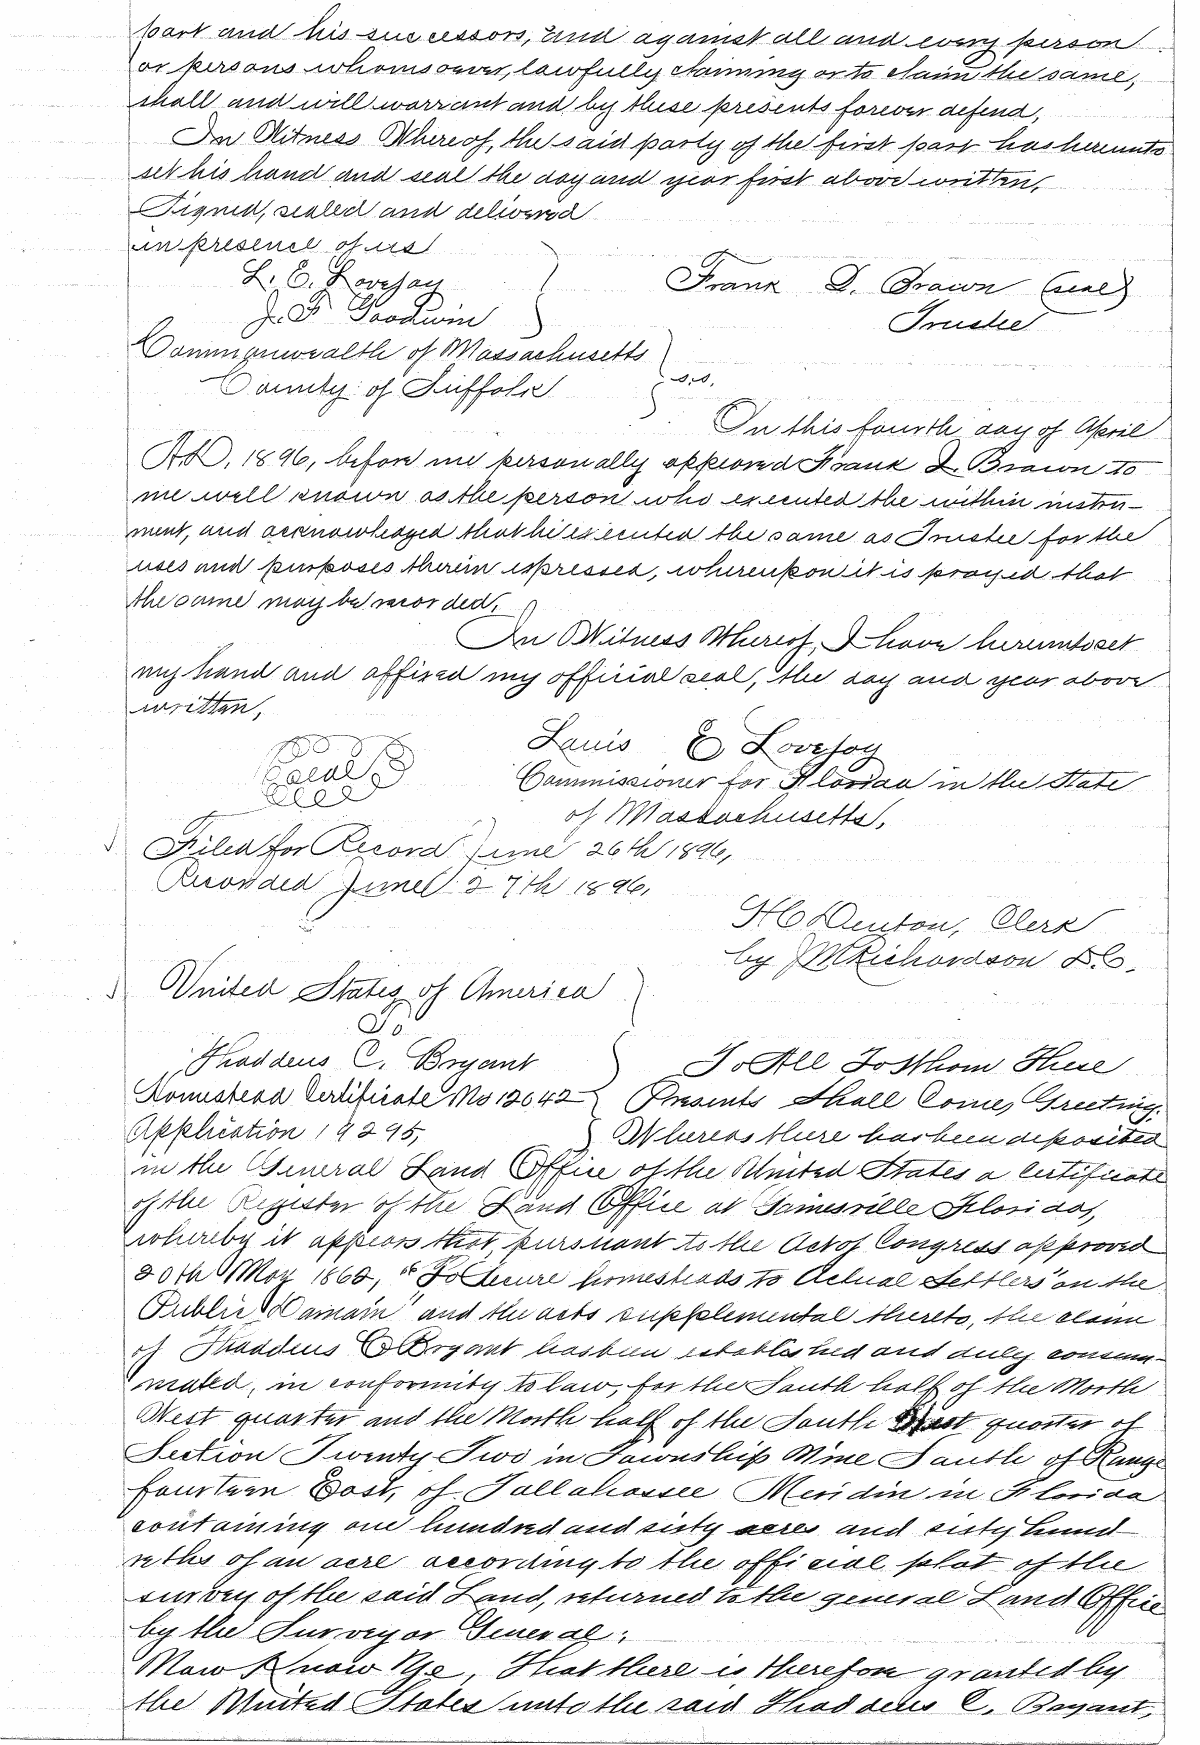 part and his successors, and against all and every person
or persons whomsoever, lawfully claiming or to claim the same,
shall and will warrant and by these presents forever defend,
In Witness Whereof, the said party of the first part has hereunto
set his hand and seal the day and year first above written,
Signed, sealed and delivered
in presence of us
L. E. Lovejoy
Frank D. Brown (seal)
J. F. Goodwin
Trustee
Commonwealth of Massachusetts
County of Suffolk } s.s.
On this fourth day of April
A.D. 1896, before me personally appeared Frank D. Brown to
me well known as the person who executed the within instru-
ment, and acknowledged that he executed the same as Trustee for the
uses and purposes therein expressed, whereupon it is prayed that
the same may be recorded,
In Witness Whereof, I have hereunto set
my hand and affixed my official seal, the day and year above
written,
Louis E Lovejoy
Seal
Commissioner for Florida in the State
of Massachusetts,
Filed for Record June 26th 1896,
Recorded June 27th 1896,
H C Denton, Clerk
by J M Richardson D.C.
United States of America
To
Thaddeus C. Bryant
To All To Whom These
Homestead Certificate No 12042
Presents Shall Come, Greeting:
Application 19295,
Whereas there has been deposited
in the General Land Office of the United States a Certificate
of the Register of the Land Office at Gainesville Florida,
whereby it appears that, pursuant to the Act of Congress approved
20th May 1862, "To Secure homesteads to Actual Settlers" on the
Public Domain" and the acts supplemental thereto, the claim
of Thaddeus C Bryant has been established and duly consum-
mated, in conformity to law, for the South half of the North
West quarter and the North half of the South West quarter of
Section Twenty Two in Township Nine South of Range
fourteen East, of Tallahassee Meridin in Florida
containing one hundred and sixty acres and sixty hund
reths of an acre according to the official plat of the
survey of the said Land, returned to the general Land Office
by the Surveyor General:
Now Know Ye, That there is therefore granted by
the United States unto the said Thaddeus C. Bryant,